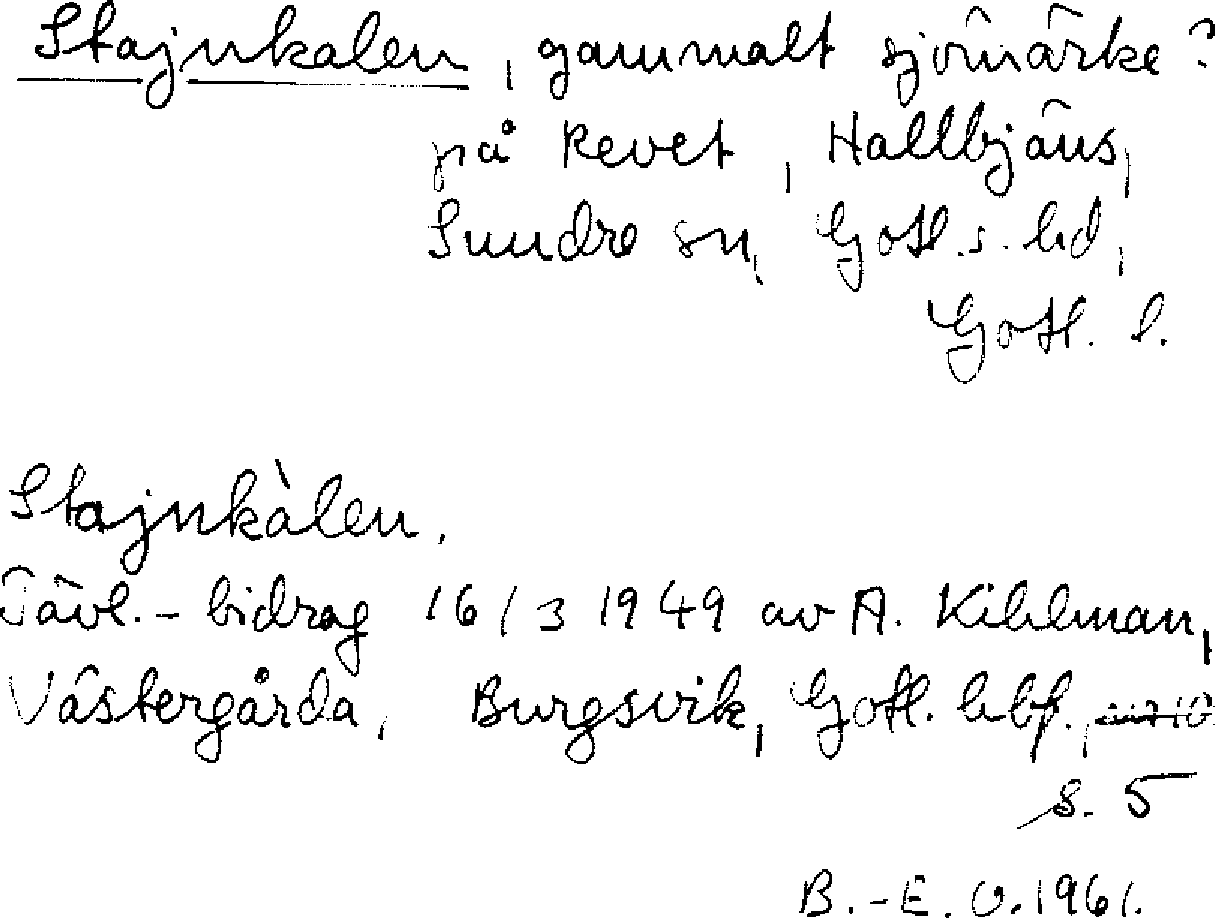 Stajnkalen, gammalt sjömärke?
på Revet, Hallbjäns,
Sundre sn, Gotl. s. hd,
Gotl. l.
Stajnkàlen.
Tävl.-bidrag 16/3 1949 av A. Kihlman,
Västergårda, Burgsvik, Gotl. hbf.,
s. 5
B.-E. O. 1961.